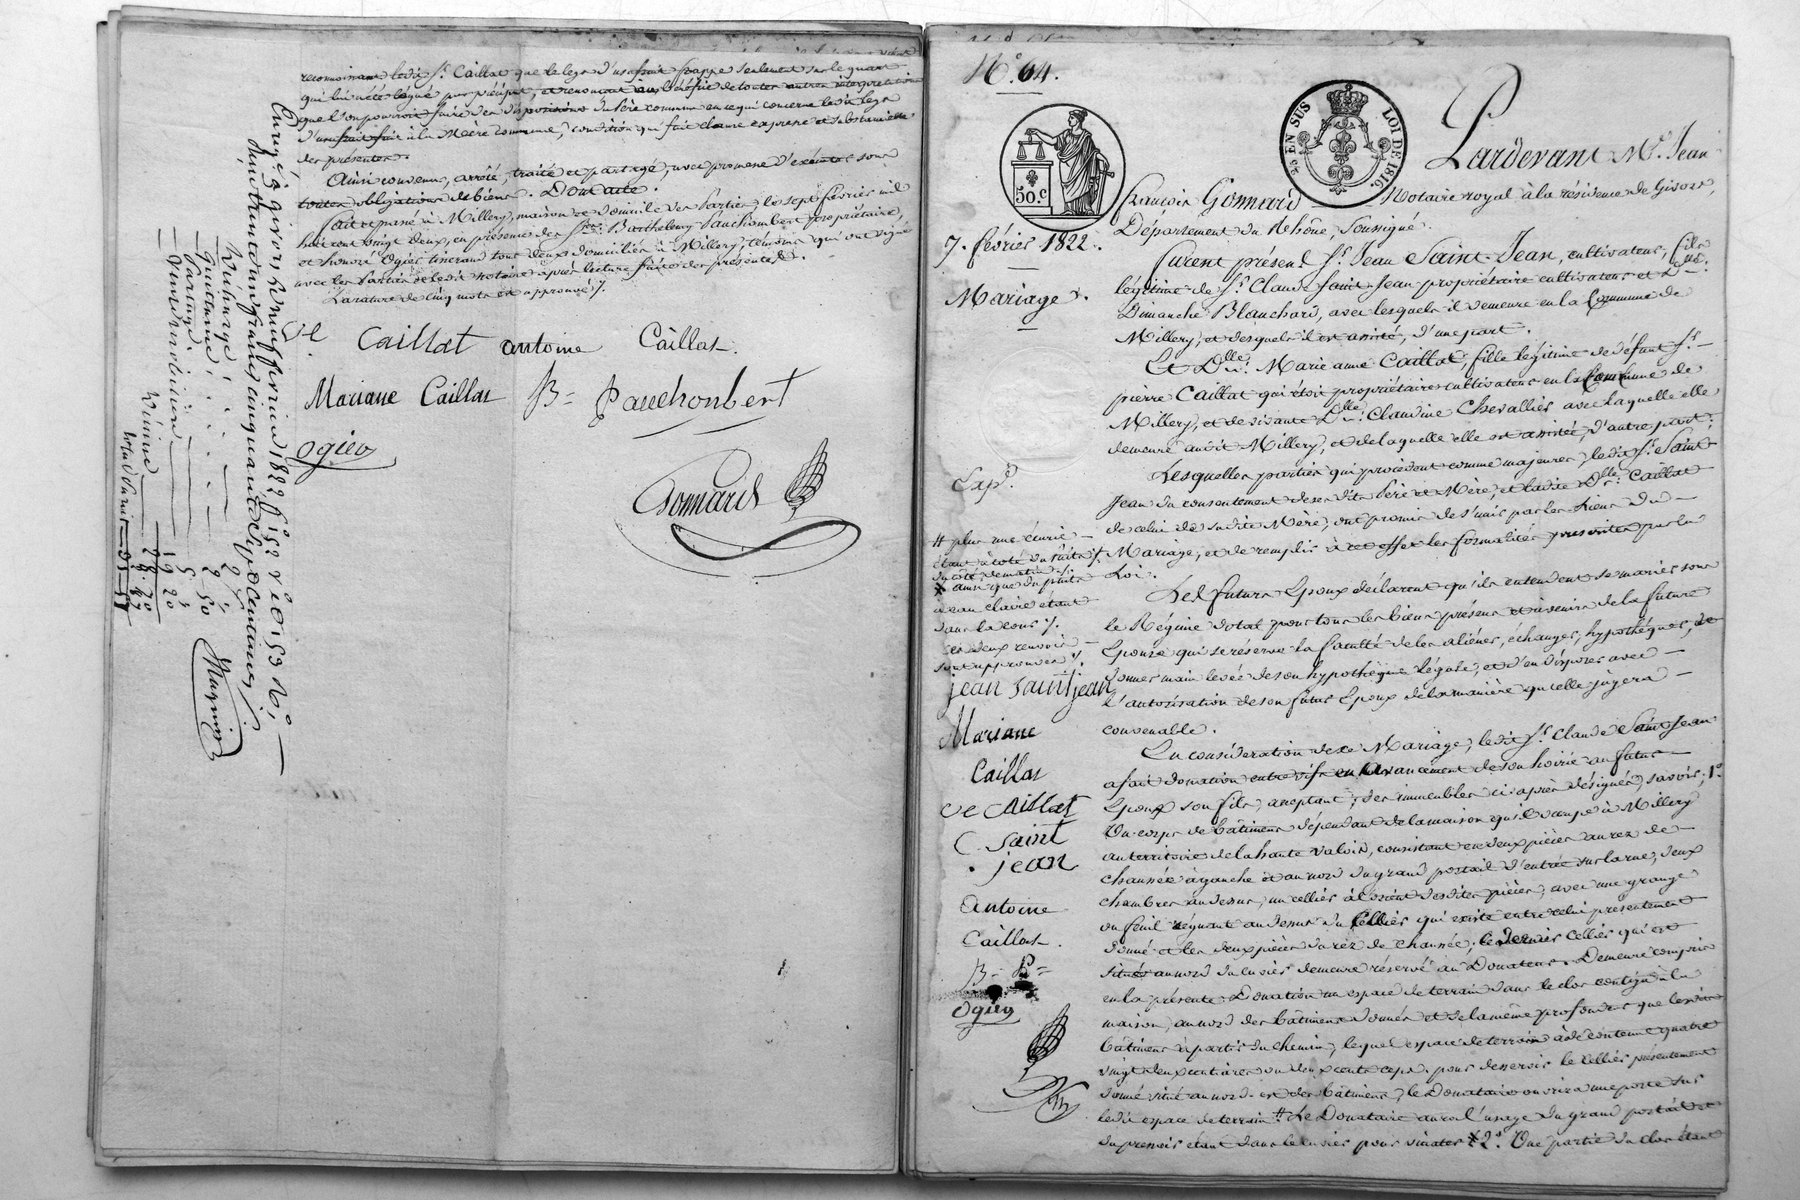 reconnaissant ledit Sr. Caillat que le legs d'usufruit frappe seulement sur le quart
qui lui a été légué par préciput, et renonçant au bénéfice de toutes autres interprétations
que l'on pourroit faire des dispositions du Père commun en ce qui concerne le dit legs
d'usufruit fait à la Mère commune, condition qui fait clause expresse et substantielle
des présentes.
Ainsi convenu, arrêté, traité et partagé, avec promesse d'exécuter sous
toutes obligations de biens. Dont acte.
Fait et passé à Millery, maison et domicile des Parties, le sept février mil
huit cent vingt deux, en présence des Srs. Barthelemy Pauchonbert propriétaire,
et honoré Ogier tisserand tous deux domiciliés à Millery, témoins qui ont signé
avec les Parties et le dit notaire après lecture faite des présentes.
La rature de cinq mots est approuvée /.
ve Caillat antoine Caillat
Mariane Caillat B = Pauchonbert
Ogier
Gonnard
Enregé. à givors le neuf février 1822 fo. 152 vo et 153 Ro.
Reçu trente un francs cinquante sept centimes
Décharge 2 "
Quittance 2 50
Partage 5 "
Droit immobilier 19 20
28 70
Dixième 2 87
total Trente 31 57
No. 64.
50.c
EN SUS LOI DE 1816.
7. février 1822.
Mariage.
Pardevant Me. Jean
François Gonnard Notaire royal à la résidence de Givors,
Département du Rhône, soussigné.
Furent présens Sr. Jean Saint-Jean, cultivateur, fils
légitime de Sr. Claude Saint-Jean propriétaire cultivateur et de
Dimanche Blanchard, avec lesquels il demeure en la Commune de
Millery, et desquels il est assisté, d'une part.
Et Dlle. Marie anne Caillat, fille légitime de défunt Sr.
pierre Caillat qui étoit propriétaire cultivateur en la Commune de
Millery, et de vivante Dlle. Claudine Chevallier avec laquelle elle
demeure audit Millery, et de laquelle elle est assistée, d'autre part;
Lesquelles parties qui procèdent comme majeures, le dit Sr. Saint
Jean du consentement de ses dits Père et Mère, et la dite Dlle. Caillat
de celui de sa dite Mère, ont promis de s'unir par les liens du
Mariage, et de remplir à cet effet les formalités prescrites par la
Loi.
Les futurs Epoux déclarent qu'ils entendent se marier sous
le Régime dotal pour tous les biens présens et à venir de la future
Epouse qui se réserve la faculté de les aliéner, échanger, hypothéquer, de
donner main levée de son hypothèque légale, et d'en disposer avec
l'autorisation de son futur Epoux de la manière qu'elle jugera
convenable.
En considération de ce Mariage, le dit Sr. Claude Saint Jean
a fait donation entre vifs en Avancement de son hoirie au futur
Epoux son fils, acceptant, des immeubles ci-après désignés, savoir; 1o.
Un corps de bâtimens dépendant de la maison qu'il occupe à Millery
au territoire de la haute valois, consistant en deux pièces au rez de
chaussée à gauche et au nord du grand portail d'entrée sur la rue, deux
chambres au dessus, un cellier à l'orient desdites pièces, avec une grange
ou feuil régnant au dessus du Cellier qui existe entre celui présentement
donné et les deux pièces du rez de chaussée, le dernier cellier qui est
situé au nord du cuvier demeure réservé au Donateur. Demeure compris
en la présente Donation un espace de terrain dans le clos contigu à la
maison, au nord des bâtimens donnés et de la même profondeur que lesdits
bâtimens à partir du chemin, lequel espace de terrain a de contenue quatre
vingt deux centiares ou deux cents ceps. pour desservir le cellier présentement
donné situé au nord-est des bâtimens, le Donataire ouvrira une porte sur
ledit espace de terrain # Le Donataire aura l'usage du grand portail et
du pressoir étant dans le cuvier pour sa part X 2o. Une partie du clos étant
Exp.
# plus une écurie
étant à côté du
X ainsi que du puits
à eau claire étant
dans la cour /.
ces deux renvois
sont approuvés /.
jean saint jean
Mariane
Caillat
ve caillat
C saint
jean
antoine
Caillat
B = P =
Ogier